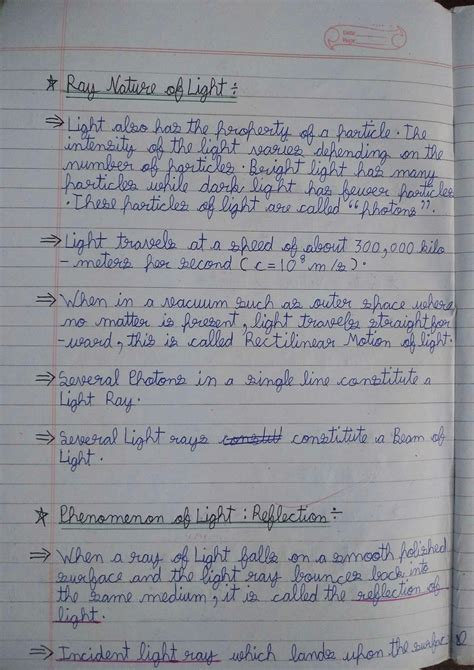 Date
Page
★ Ray Nature of Light ÷
⇒ Light also has the property of a particle. The
intensity of the light varies depending on the
number of particles. Bright light has many
particles while dark light has fewer particles
. These particles of light are called "photons".
⇒ Light travels at a speed of about 300,000 kilo
-meters per second (c=10⁸ m/s).
⇒ When in a vacuum such as outer space where
no matter is present, light travels straightfor
-ward, this is called Rectilinear Motion of light.
⇒ Several Photons in a single line constitute a
Light Ray.
⇒ Several Light rays constitute a Beam of
Light.
★ Phenomenon of Light : Reflection ÷
⇒ When a ray of Light falls on a smooth polished
surface and the light ray bounces back into
the same medium, it is called the reflection of
light.
⇒ Incident light ray which lands upon the surface